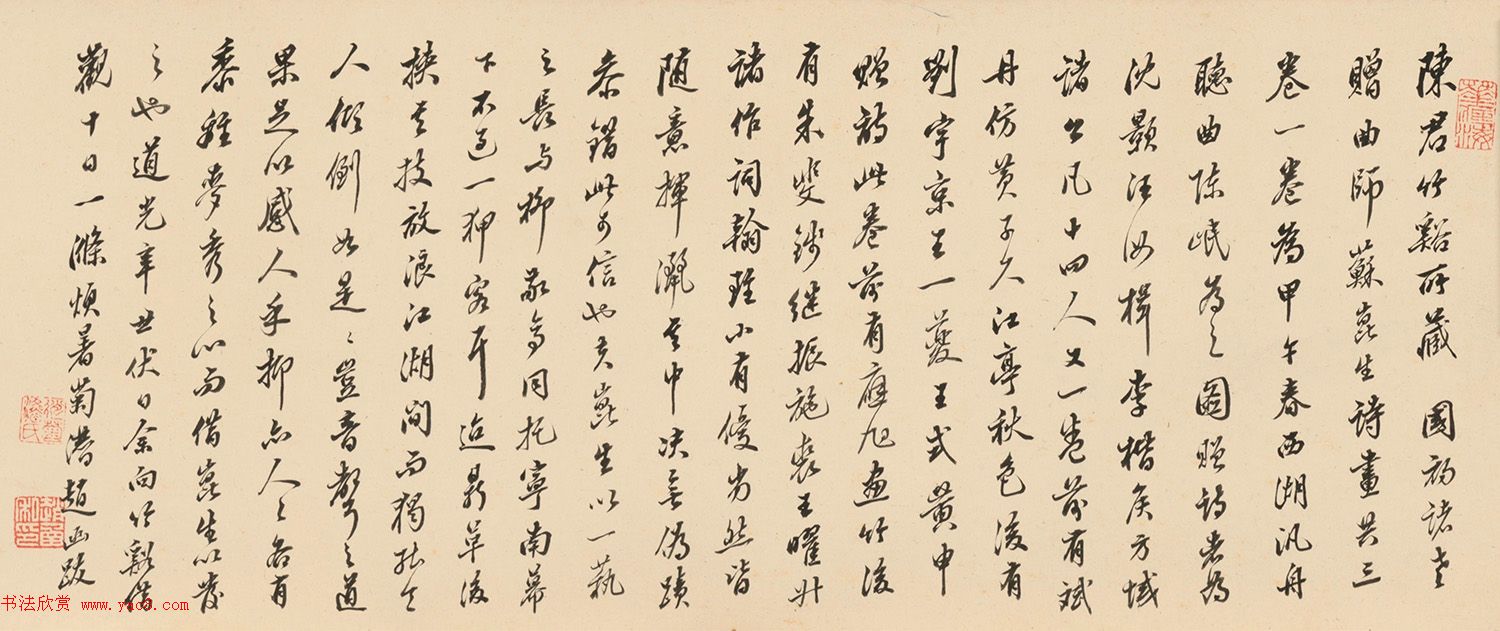 陳君竹谿所藏 國初諸老
贈曲師蘇崑生詩畫共三
卷一卷為甲午春西湖汎舟
聽曲陳岷為之圖贈詩者為
沈顥汪汝楫李楷侯方域
諸公凡十四人又一卷前有斌
丹仿黃子久江亭秋色後有
劉宇京王一夔王式黃申
贈詩此卷前有應旭画竹後
有朱斐錢继振施裘王曜升
諸作詞翰雖小有優劣然皆
随意揮灑其中决無偽蹟
叅錯此可信也夫崑生以一藝
之長与柳敬亭同托寧南幕
下不過一狎客耳迨鼎革後
挟其技放浪江湖间而獨能令
人傾倒如是是豈音聲之道
果足以感人乎抑亦人人各有
黍離麥秀之心而借崑生以發
之也道光辛丑伏日余向竹谿借
觀十日一滌煩暑菊潜趙函跋
书法欣赏 www.yac8.com